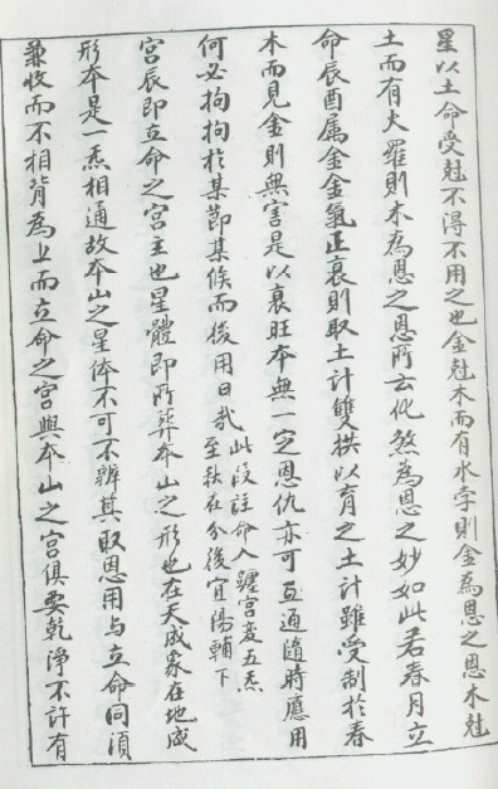 星以土命受尅不得不用之也金尅木而有水孛則金為恩之恩木尅
土而有火羅則木為恩之恩所云化煞為恩之妙如此若春月立
命辰酉属金金氣正衰則取土計雙拱以育之土計雖受制於春
木而見金則無害是以衰旺本無一定恩仇亦可互通隨時應用
何必拘拘於某節某候而後用日㢤此段註命入躔宮変五炁
至秋在分後宜陽輔下
宮辰即立命之宮主也星體即所葬本山之形也在天成象在地成
形本是一炁相通故本山之星体不可不辨其取恩用与立命同湏
兼收而不相背為上而立命之宮與本山之宮俱要乾淨不許有